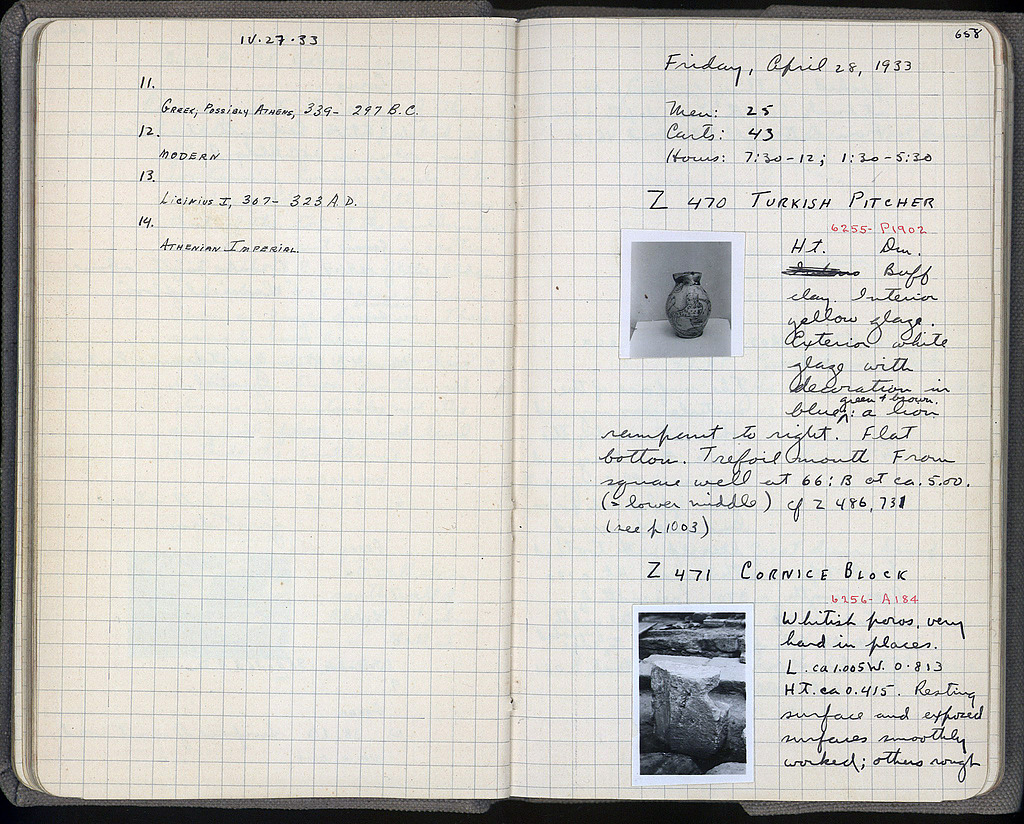 IV·27·33
11.
Greek; Possibly Athens, 339- 297 B.C.
12.
MODERN
13.
Licinius I, 307- 323 A.D.
14.
Athenian Imperial.
658
Friday, April 28, 1933
Men: 25
Carts: 43
Hours: 7:30-12; 1:30-5:30
Z 470 TURKISH PITCHER
6255- P1902
Ht. Dm.
Buff
clay. Interior
yellow glaze.
Exterior white
glaze with
decoration in
green + brown.
blue ^: a lion
rampant to right. Flat
bottom. Trefoil mouth From
square well at 66: B at ca. 5.00.
(= lower middle) cf Z 486, 731
(see p 1003)
Z 471 CORNICE BLOCK
6256- A184
Whitish poros, very
hard in places.
L. ca 1.005 W. 0.813
HT. ca 0.415. Resting
surface and exposed
surfaces smoothly
worked; others rough